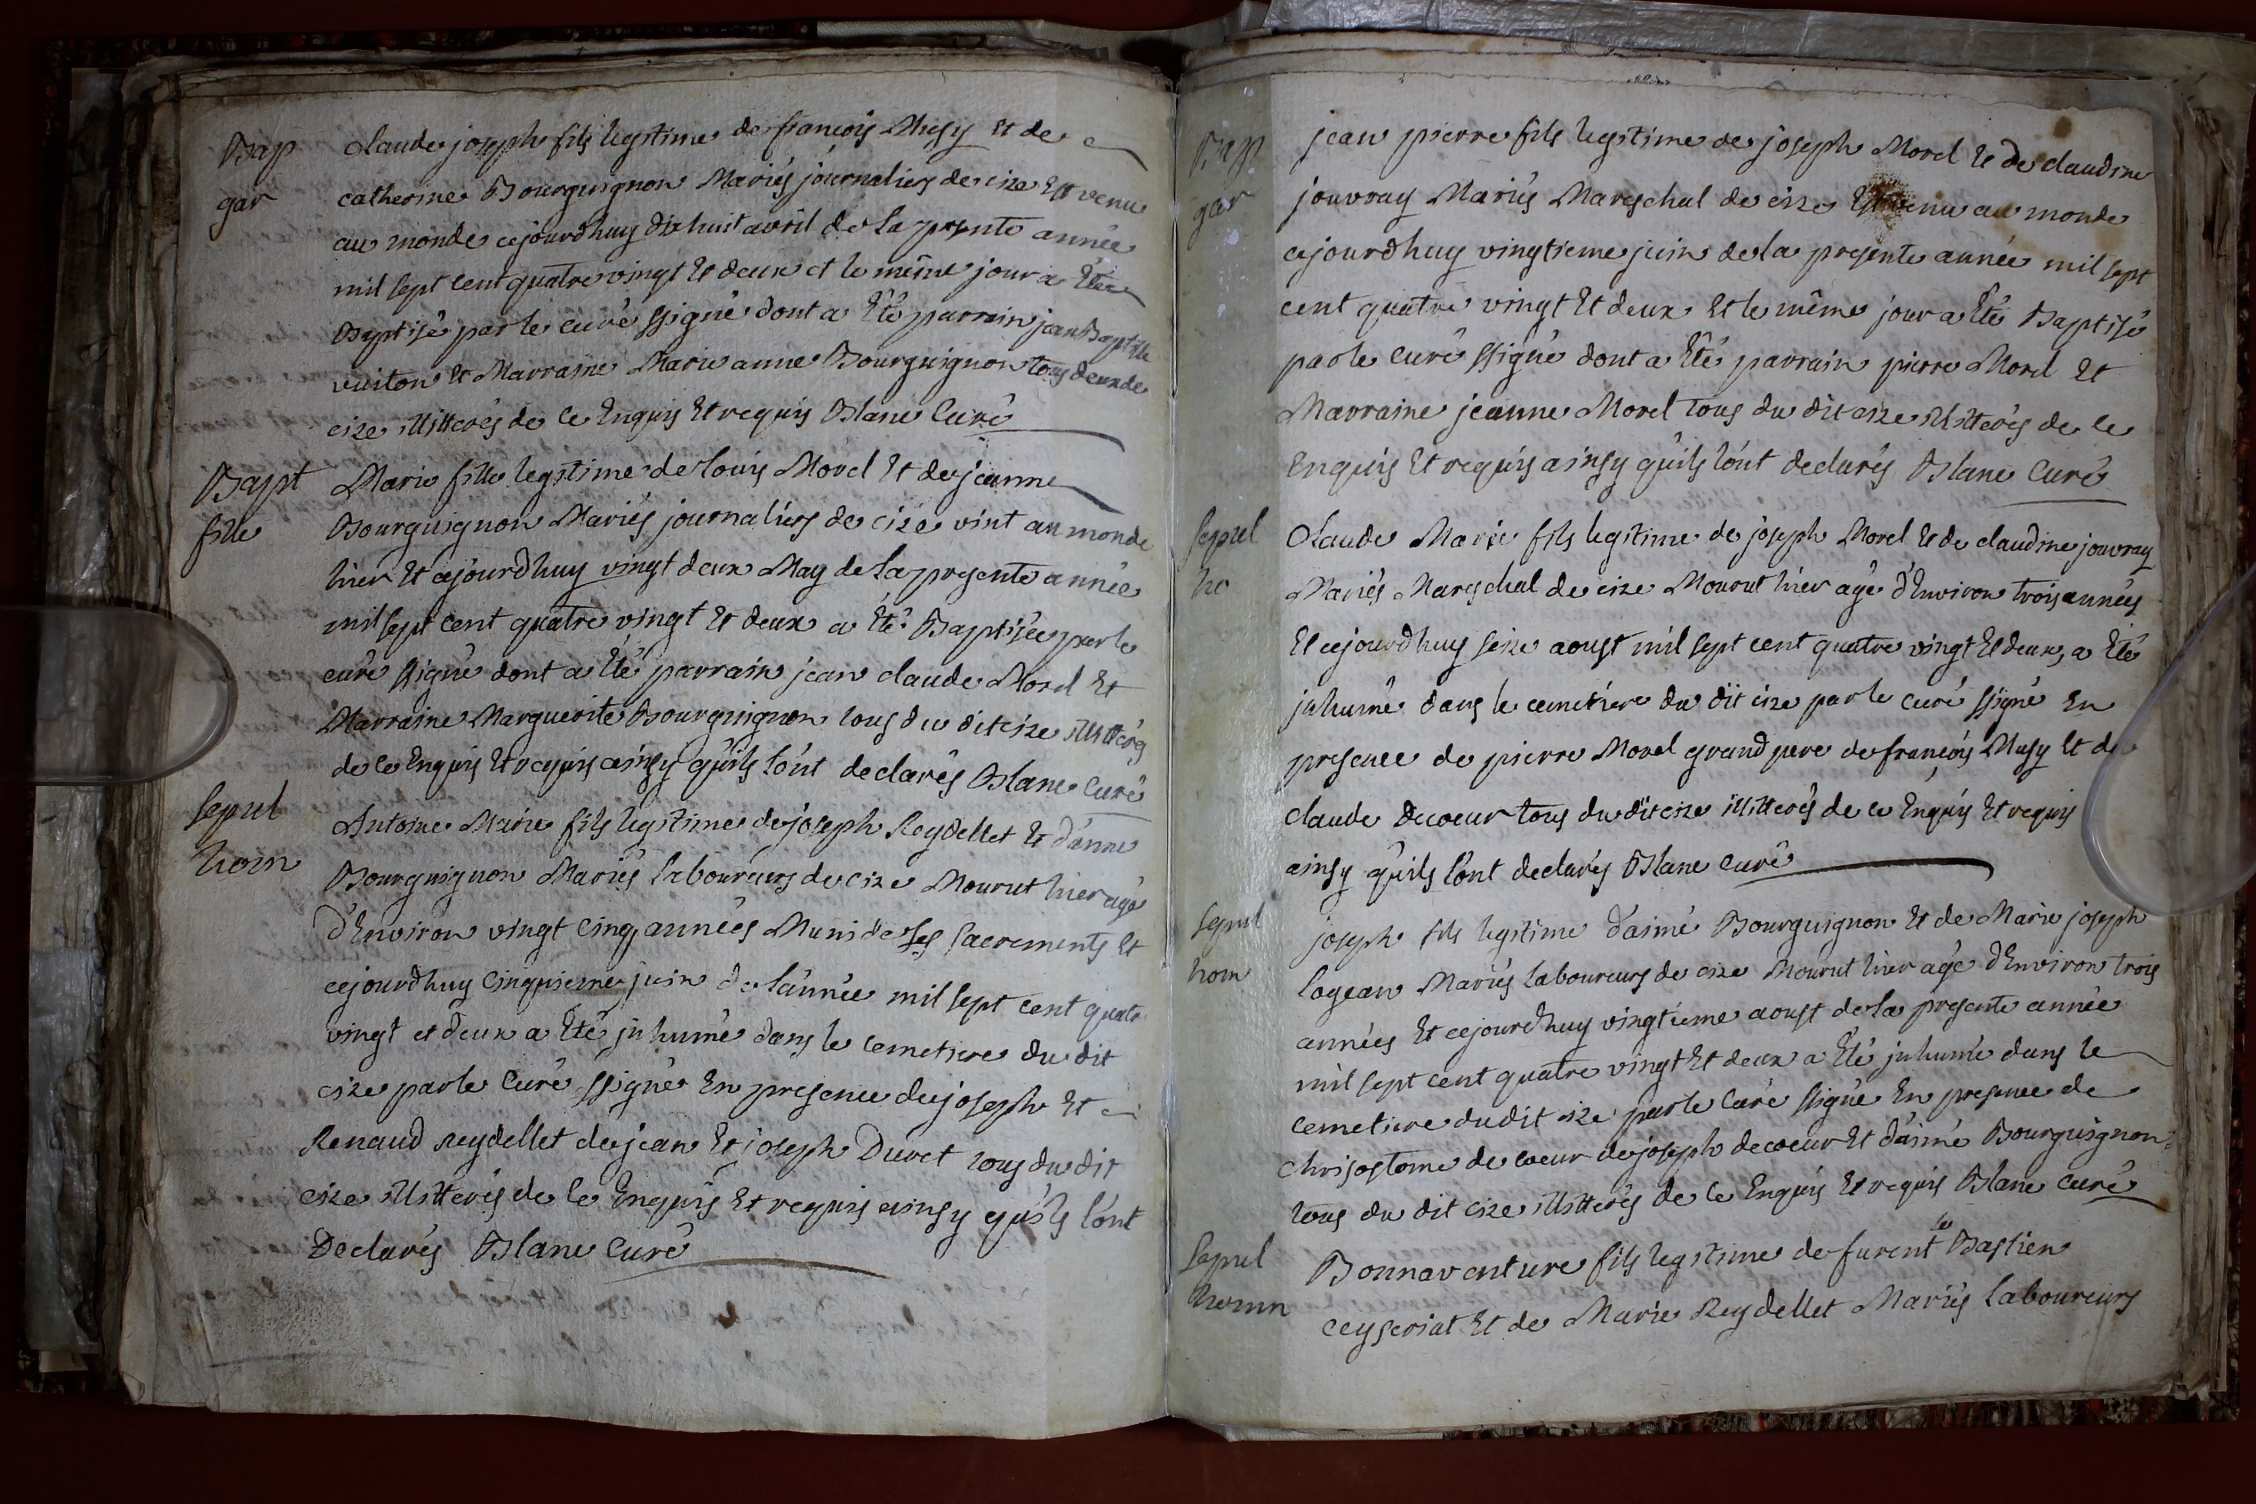 Bap
gar
Claude joseph fils legitime de françois Musy Et de
catherine Bourguignon Mariés journaliers de cize Est venu
au monde cejourdhuy dix huit avril de la pnte année
mil sept cent quatre vingt Et deux et le même jour a Été
Baptisé par le curé ssigné dont a Été parrain jean Baptiste
vuiton Et Marraine Marie anne Bourguignon tous deux de
cize illitterés de ce Enquis Et requis Blanc Curé
Bapt
fille
Marie fille legitime de Louis Morel Et de jeanne
Bourguignon Mariés journaliers de cize vint au monde
hier Et cejourdhuy vingt deux May de la presente année
mil sept cent quatre vingt Et deux a Été Baptisée par le
curé ssigné dont a Été parrain jean claude Morel Et
Marraine Marguerite Bourguignon tous du dit cize illitterés
de ce Enquis Et requis ainsy qu'ils l'ont declarés Blanc Curé
Sepul
hom
Antoine Marie fils legitime de joseph Reydellet Et d'anne
Bourguignon Mariés laboureurs de cize Mourut hier agé
d'Environ vingt cinq années Muni de ses sacrements Et
cejourdhuy cinquieme juin de l'année mil sept cent quatre
vingt et deux a Été jnhumé dans le cemetiere du dit
cize par le Curé ssigné En presence de joseph Et
Renaud Reydellet de jean Et joseph Duret tous du dit
cize illitterés de ce Enquis Et requis ainsy qu'ils l'ont
Declarés Blanc Curé
Bap
gar
jean pierre fils legitime de joseph Morel Et de claudine
jouvray Mariés Mareschal de cize Est venu au monde
cejourdhuy vingtieme juin de la presente année mil sept
cent quatre vingt Et deux Et le même jour a Été Baptisé
par le curé ssigné dont a Été parrain pierre Morel Et
Marraine jeanne Morel tous du dit cize illitterés de ce
Enquis Et requis ainsy qu'ils l'ont declarés Blanc Curé
Sepul
ho
Claude Marie fils legitime de joseph Morel Et de claudine jouvray
Mariés Mareschal de cize Mourut hier agé d'Environ trois années
Et cejourdhuy seize aoust mil sept cent quatre vingt Et deux, a Été
jnhumé dans le cemetiere du dit cize par le curé ssigné En
presence de pierre Morel grand pere de françois Musy Et de
claude Decoeur tous du dit cize illitterés de ce Enquis Et requis
ainsy qu'ils l'ont declarés Blanc Curé
Sepul
hom
joseph fils legitime d'aimé Bourguignon Et de Marie joseph
Logean Mariés laboureurs de cize Mourut hier agé d'Environ trois
années Et cejourdhuy vingtieme aoust de la presente année
mil sept cent quatre vingt Et deux a Été jnhumé dans le
cemetiere du dit cize par le Curé ssigné En presence de
chrisostome de coeur de joseph decoeur Et d'aimé Bourguignon
tous du dit cize illitterés de ce Enquis Et requis Blanc curé
Sepul
homm
Bonnaventure fils legitime de furent Bastien
ceyseriat Et de Marie Reydellet Mariés laboureurs